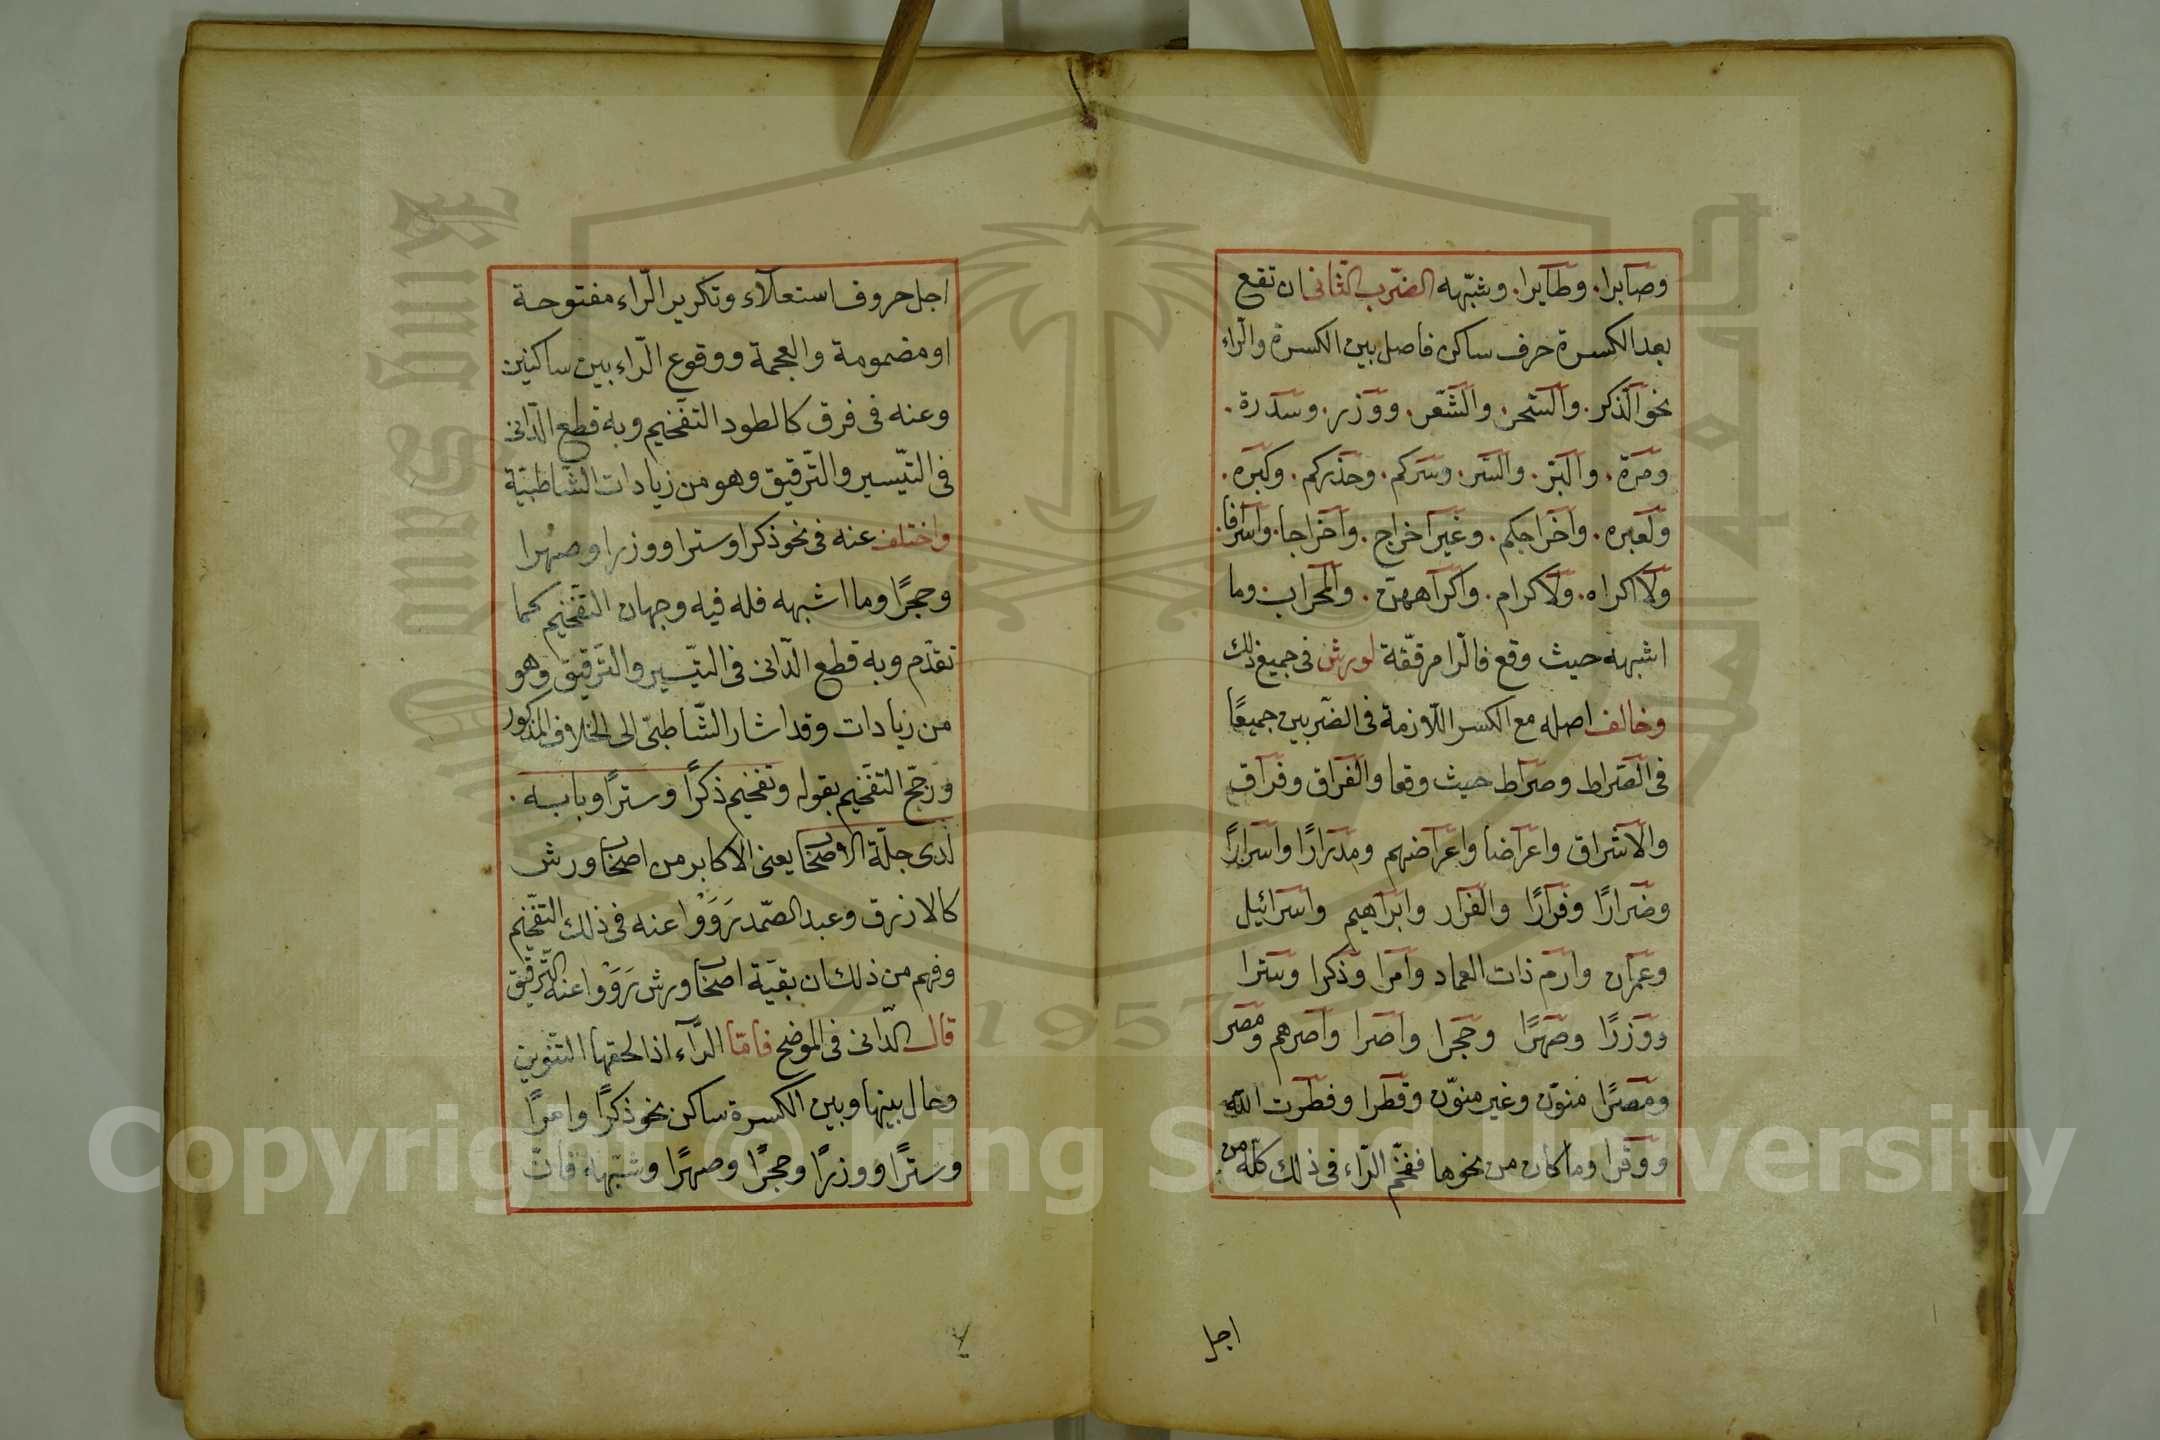 وصابرا. وطايرا. وشبّهه الضّرب الثّانى ان تقع
بعد الكسرة حرف ساكن فاصل بين الكسرة والرّاء
نحو الذّكر. والسّحر. والشّعر. ووزر. وسدرة.
ومرة. والبرّ. والسّر. وسركم. وحذركم. وكبره.
ولعبرة. واخراجكم. وغير اخراج. واخراجا. واسرافا.
ولا اكراه. ولاكرام. واكراههنّ. والمحراب. وما
اشبهه حيث وقع فالرّا مرقّقة لورش فى جميع ذلك
وخالف اصله مع الكسر اللّازمة فى الضّربين جميعًا
فى الصّراط وصراط حيث وقعا والفراق وفراق
والاشراق واعراضا واعراضهم ومدرارًا واسرارًا
وضرارًا وفرارًا والفرار وابراهيم واسرائيل
وعمران وارم ذات العماد وامرا وذكرا وسترا
ووزرًا وصهرًا وحجرا واصرا واصرهم ومصر
ومصرًا منوّن وغير منوّن وقطرا وفطرت اللّه
ووقرا وما كان من نحوها ففخّم الرّاء فى ذلك كلّه من
اجل
اجل حروف استعلآء وتكرير الرّاء مفتوحة
او مضمومة والعجمة ووقوع الرّاء بين ساكنين
وعنه فى فرق كالطود التفخيم وبه قطع الدّانى
فى التيّسير والتّرقيق وهو من زيادات الشّاطبيّة
واختلف عنه فى نحو ذكرا وسترا ووزرا وصهرا
وحجرًا وما اشبهه فله فيه وجهان التفخيم كما
تقدّم وبه قطع الدّانى فى التيّسير والتّرقيق وهو
من زيادات وقد اشار الشّاطبىّ الى الخلاف المذكور
ورجّح التفخيم بقوله وتفخيم ذكرًا وسترًا وبابه.
لدى جلّة الاصحاب يعنى الاكابر من اصحاب ورش
كالازرق وعبد الصّمد رَوَوْا عنه فى ذلك التفخيم
وفهم من ذلك ان بقيّة اصحاب ورش رَوَوْا عنه التّرقيق
قال الدّانى فى الموضح فامّا الرّآء اذا لحقها التنوين
وحال بينها وبين الكسرة ساكن نحو ذكرًا وامرًا
وسترًا ووزرًا وحجرًا وصهرًا وشبّهه فانّ